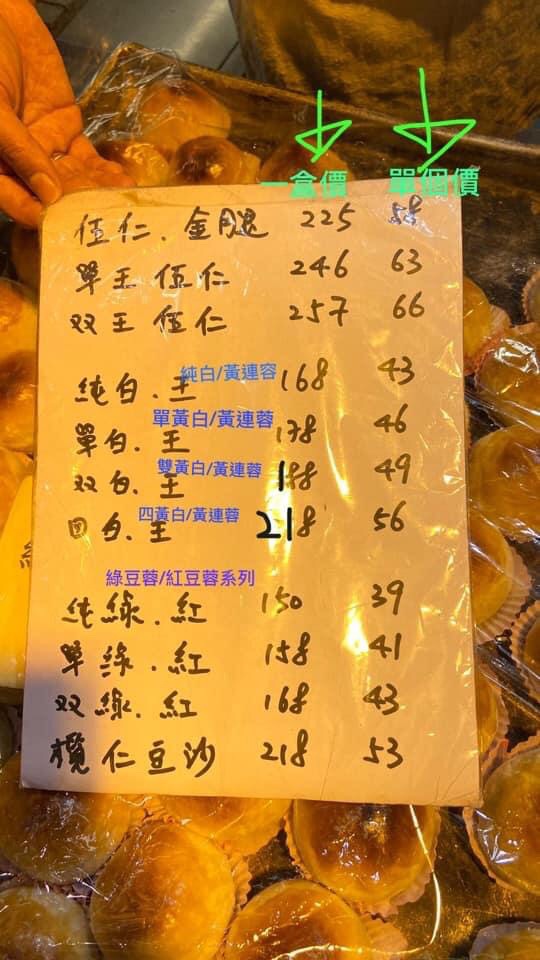 一盒價 單個價
伍仁.金腿 225 58
單王伍仁 246 63
双王伍仁 257 66
純白/黃連容
純白.王 168 43
單黃白/黃連蓉
單白.王 178 46
雙黃白/黃連蓉
双白.王 188 49
四黃白/黃連蓉
四白.王 218 56
綠豆蓉/紅豆蓉系列
純綠.紅 150 39
單綠.紅 158 41
双綠.紅 168 43
欖仁豆沙 218 53